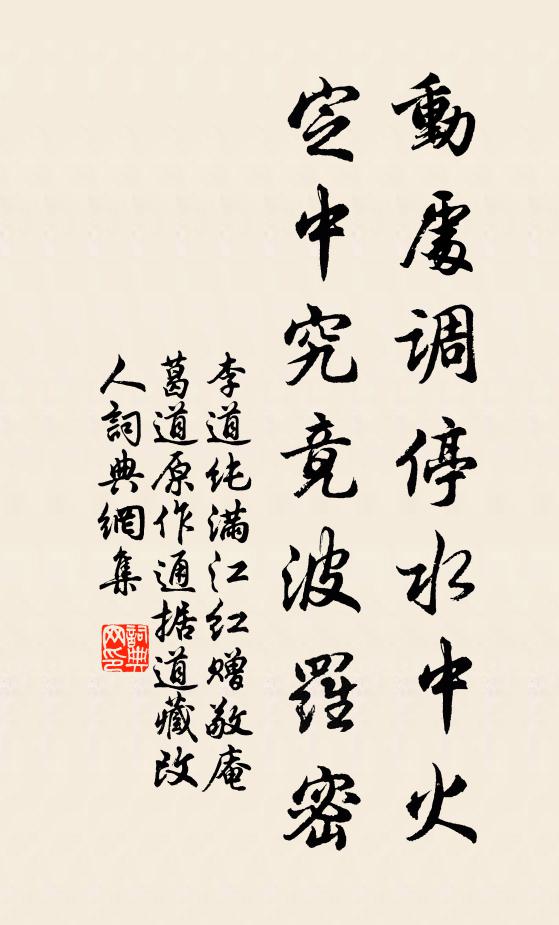 動處調停水中火
定中究竟波羅密
李道纯滿江红赠敬庵
葛道原作通据道藏改
人詞典網集
詞典网印